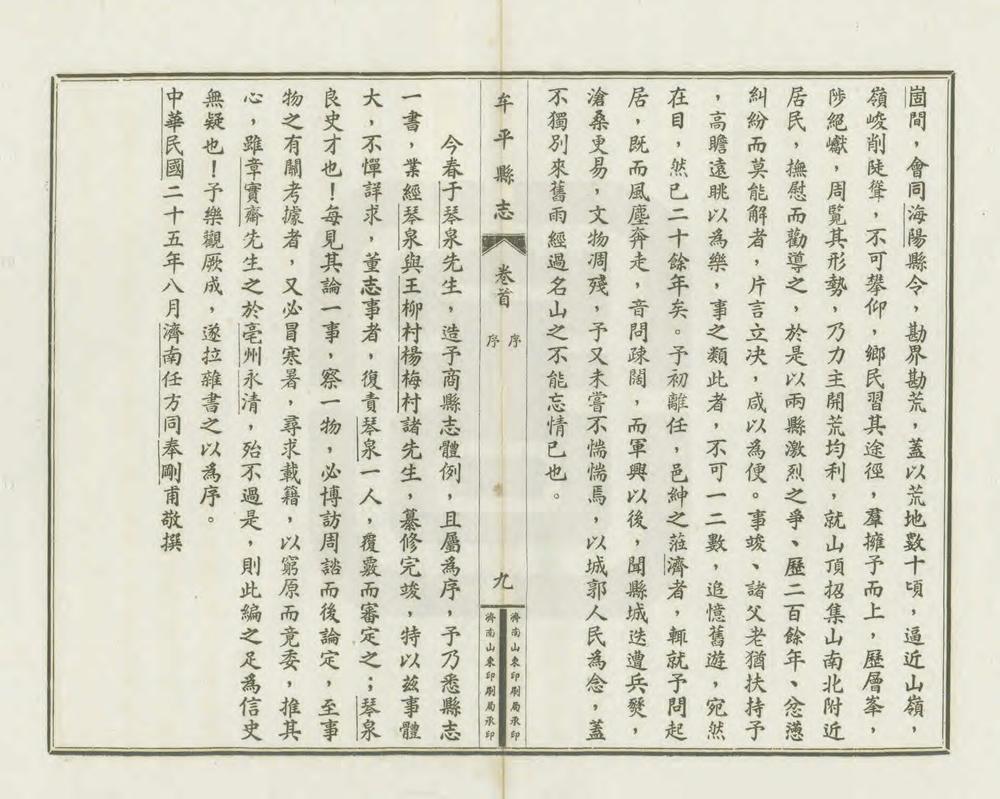 崮間，會同海陽縣令，勘界勘荒，蓋以荒地數十頃，逼近山嶺，
嶺峻削陡聳，不可攀仰，鄉民習其途徑，羣擁予而上，歷層峯，
陟絕巘，周覽其形勢，乃力主開荒均利，就山頂招集山南北附近
居民，撫慰而勸導之，於是以兩縣激烈之爭、歷二百餘年、忿懣
糾紛而莫能解者，片言立決，咸以為便。事竣、諸父老猶扶持予
，高瞻遠眺以為樂，事之類此者，不可一二數，追憶舊遊，宛然
在目，然已二十餘年矣。予初離任，邑紳之蒞濟者，輒就予問起
居，既而風塵奔走，音問疎闊，而軍興以後，聞縣城迭遭兵燹，
滄桑更易，文物凋殘，予又未嘗不惴惴焉，以城郭人民為念，蓋
不獨別來舊雨經過名山之不能忘情已也。
牟平縣志 卷首 序 序 九 濟南山東印刷局承印 濟南山東印刷局承印
今春于琴泉先生，造予商縣志體例，且屬為序，予乃悉縣志
一書，業經琴泉與王柳村楊梅村諸先生，纂修完竣，特以茲事體
大，不憚詳求，董志事者，復責琴泉一人，覆覈而審定之；琴泉
良史才也！每見其論一事，察一物，必博訪周諮而後論定，至事
物之有關考據者，又必冒寒暑，尋求載籍，以窮原而竟委，推其
心，雖章實齋先生之於亳州永清，殆不過是，則此編之足為信史
無疑也！予樂觀厥成，遂拉雜書之以為序。
中華民國二十五年八月濟南任方同奉剛甫敬撰